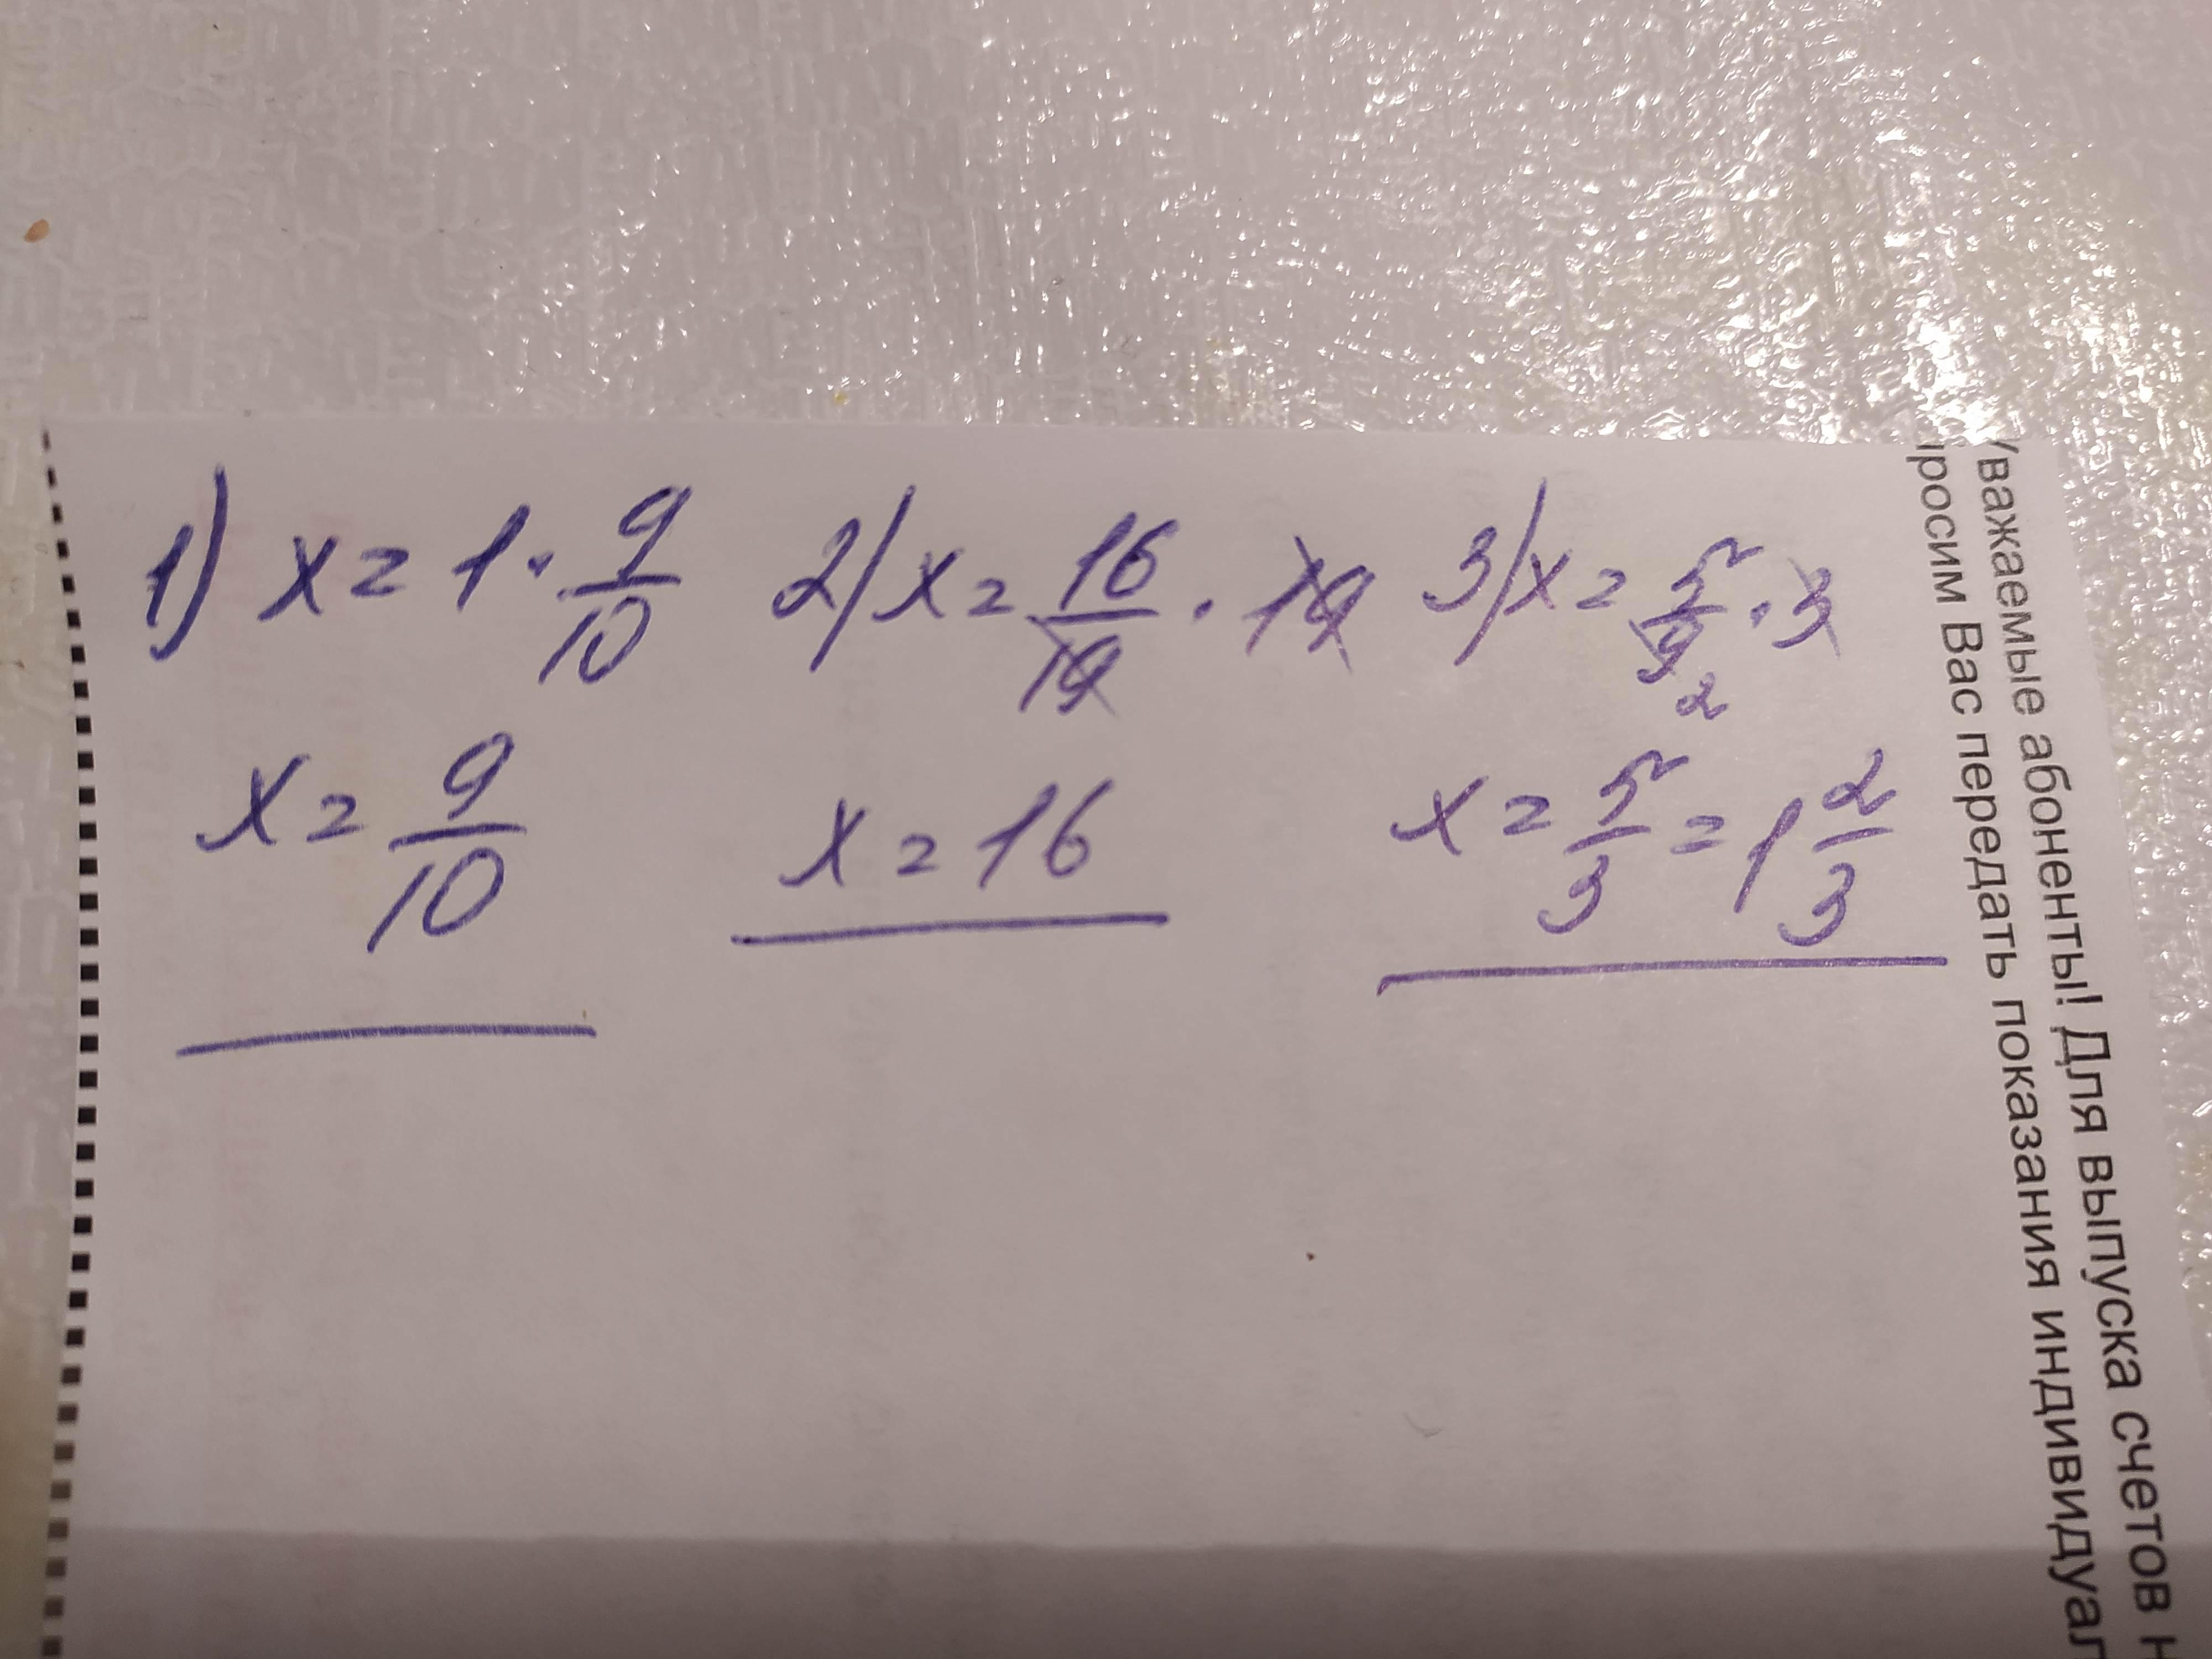 1) x = 1 · 9/10
x = 9/10
2) x = 16/19 · 19
x = 16
3) x = 5/9 · 3
2
x = 5/3 = 1 2/3
Уважаемые абоненты! Для выпуска счетов н
просим Вас передать показания индивидуал